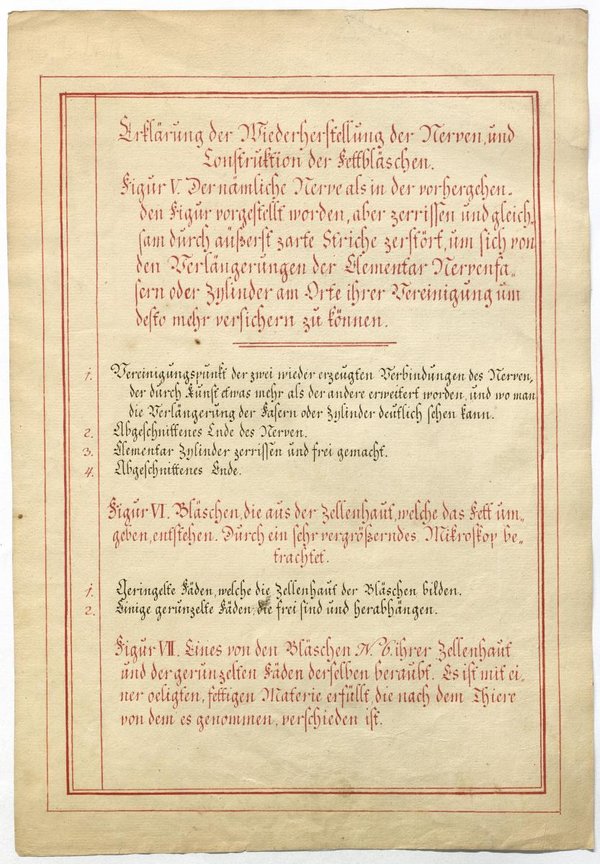 Erklärung der Wiederherstellung der Nerven, und
Construktion der Fettbläschen.
Figur V. Der nämliche Nerve als in der vorhergehen-
den Figur vorgestellt worden, aber zerrissen und gleich-
sam durch äußerst zarte Striche zerstört, um sich von
den Verlängerungen der Elementar Nervenfa-
sern oder Zylinder am Orte ihrer Vereinigung um
desto mehr versichern zu können.
1. Vereinigungspunkt der zwei wieder erzeugten Verbindungen des Nerven,
der durch Kunst etwas mehr als der andere erweitert worden, und wo man
die Verlängerung der Fasern oder Zylinder deutlich sehen kann.
2. Abgeschnittenes Ende des Nerven.
3. Elementar Zylinder zerrissen und frei gemacht.
4. Abgeschnittenes Ende.
Figur VI. Bläschen, die aus der Zellenhaut, welche das Fett um-
geben, entstehen. Durch ein sehr vergrößerndes Mikroskop be-
trachtet.
1. Geringelte Fäden, welche die Zellenhaut der Bläschen bilden.
2. Einige gerunzelte Fäden, die frei sind und herabhängen.
Figur VII. Eines von den Bläschen N. 6. ihrer Zellenhaut
und der gerunzelten Fäden derselben beraubt. Es ist mit ei-
ner oeligten, fettigen Materie erfüllt, die nach dem Thiere
von dem es genommen, verschieden ist.